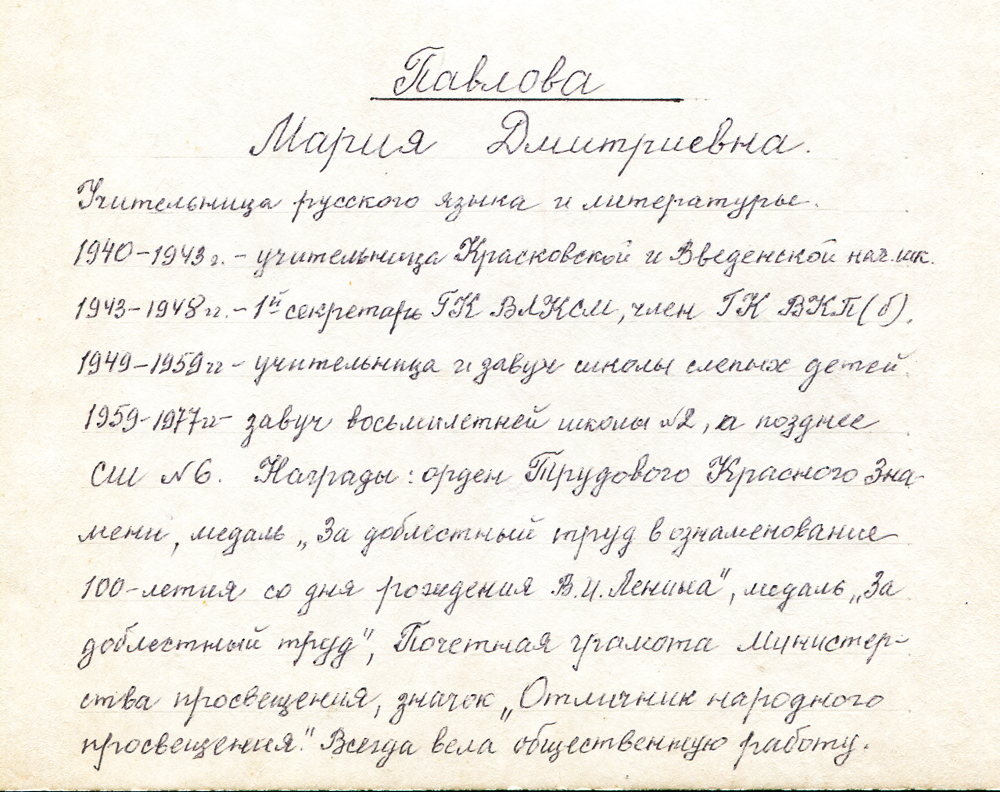 Павлова
Мария Дмитриевна.
Учительница русского языка и литературы.
1940-1943г. - учительница Красковской и Введенской нач.шк.
1943-1948гг. - 1й секретарь ГК ВЛКСМ, член ГК ВКП(б).
1949-1959гг - учительница и завуч школы слепых детей.
1959-1977гг - завуч восьмилетней школы №2, а позднее
СШ №6. Награды: орден Трудового Красного Зна-
мени, медаль „За доблестный труд в ознаменование
100-летия со дня рождения В.И.Ленина", медаль „За
доблестный труд", Почетная грамота Министер-
ства просвещения, значок „Отличник народного
просвещения." Всегда вела общественную работу.